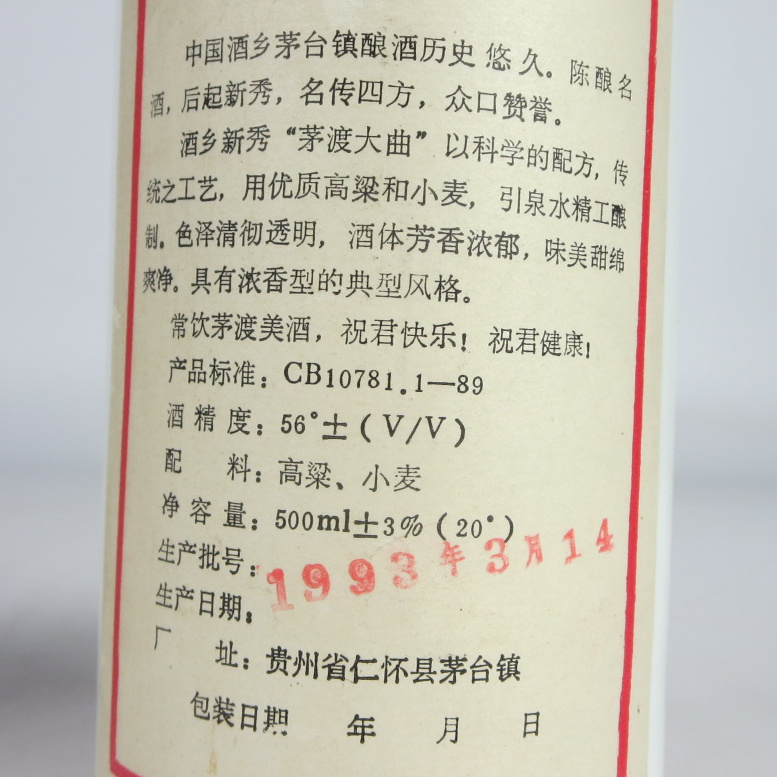 中国酒乡茅台镇酿酒历史悠久。陈酿名
酒，后起新秀，名传四方，众口赞誉。
酒乡新秀“茅渡大曲”以科学的配方，传
统之工艺，用优质高粱和小麦，引泉水精工酿
制。色泽清彻透明，酒体芳香浓郁，味美甜绵
爽净。具有浓香型的典型风格。
常饮茅渡美酒，祝君快乐！祝君健康！
产品标准：CB10781.1—89
酒精度：56°±(V/V)
配料：高粱、小麦
净容量：500ml±3%(20°)
生产批号：
1993年3月14
生产日期：
厂址：贵州省仁怀县茅台镇
包装日期 年 月 日